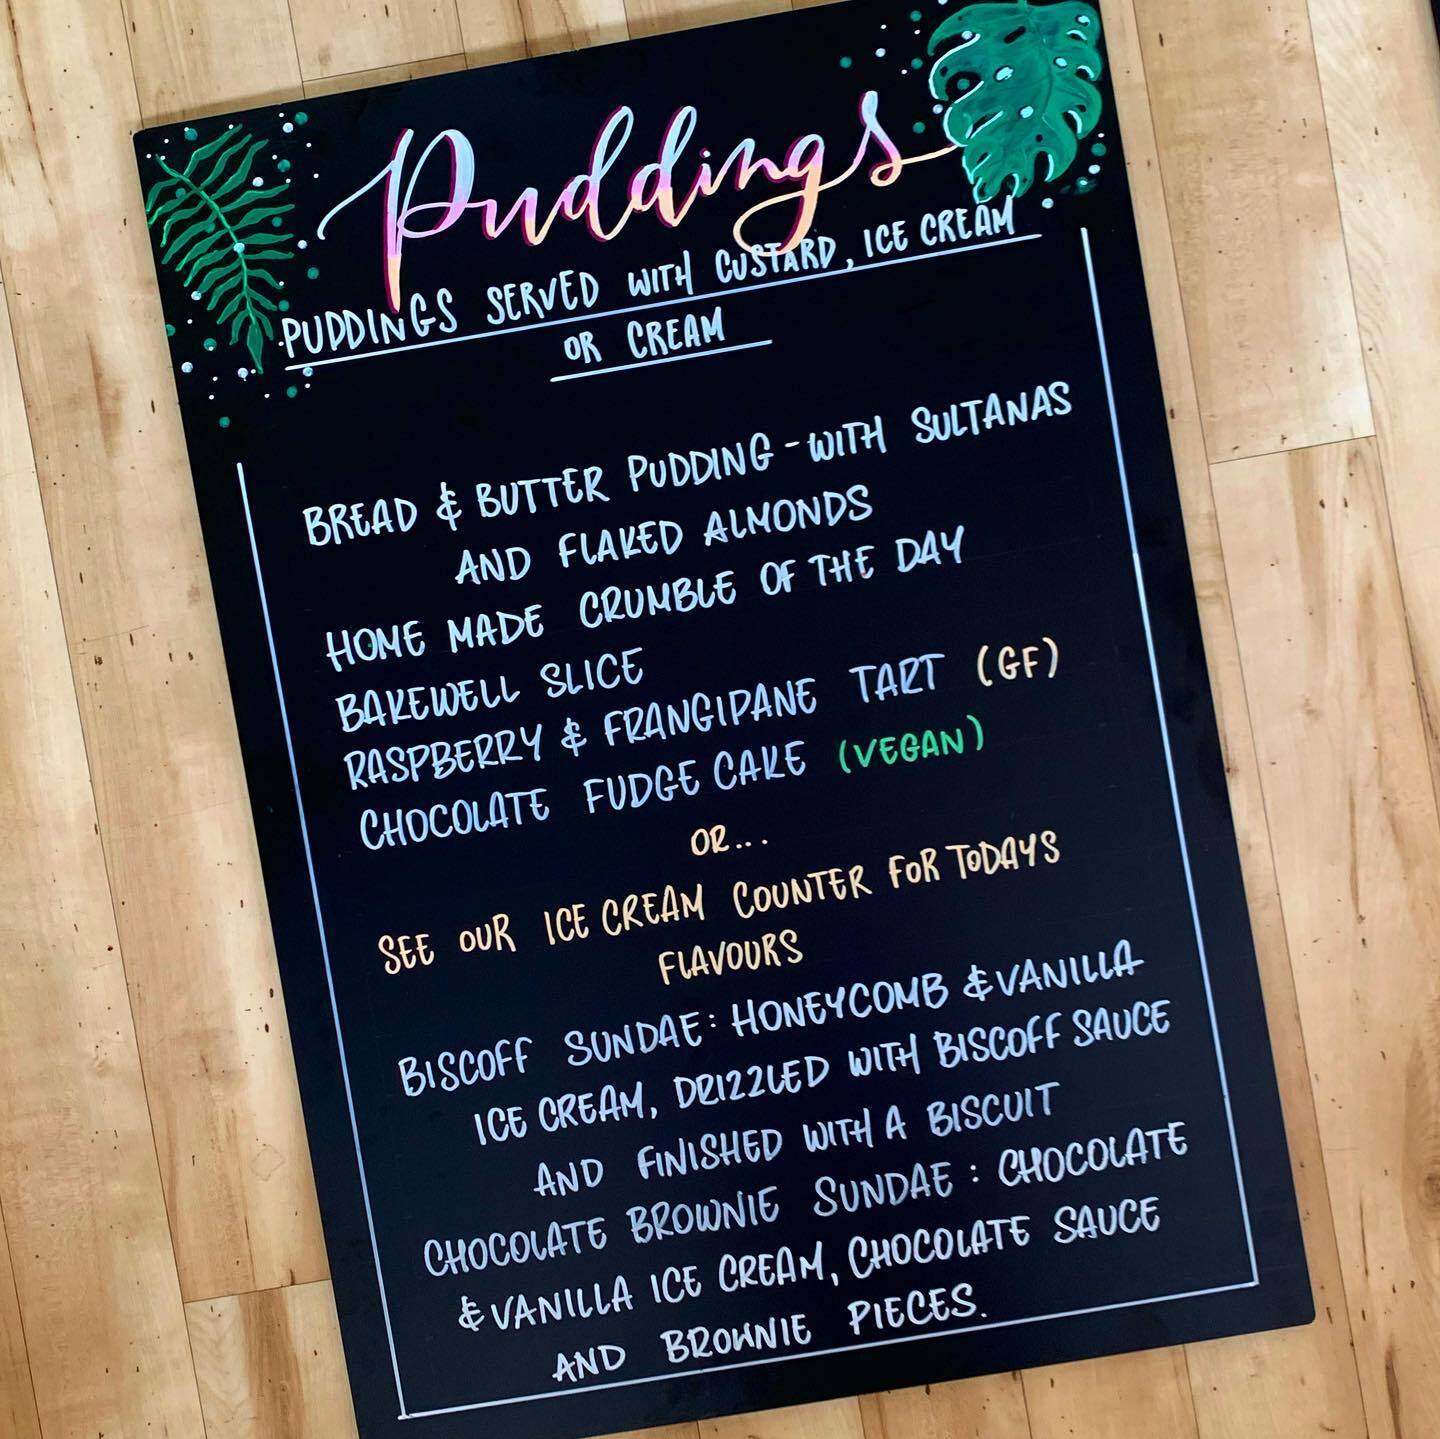 Puddings
PUDDINGS SERVED WITH CUSTARD, ICE CREAM
OR CREAM
BREAD & BUTTER PUDDING - WITH SULTANAS
AND FLAKED ALMONDS
HOME MADE CRUMBLE OF THE DAY
BAKEWELL SLICE
RASPBERRY & FRANGIPANE TART (GF)
CHOCOLATE FUDGE CAKE (VEGAN)
OR...
SEE OUR ICE CREAM COUNTER FOR TODAYS
FLAVOURS
BISCOFF SUNDAE: HONEYCOMB & VANILLA
ICE CREAM, DRIZZLED WITH BISCOFF SAUCE
AND FINISHED WITH A BISCUIT
CHOCOLATE BROWNIE SUNDAE: CHOCOLATE
& VANILLA ICE CREAM, CHOCOLATE SAUCE
AND BROWNIE PIECES.